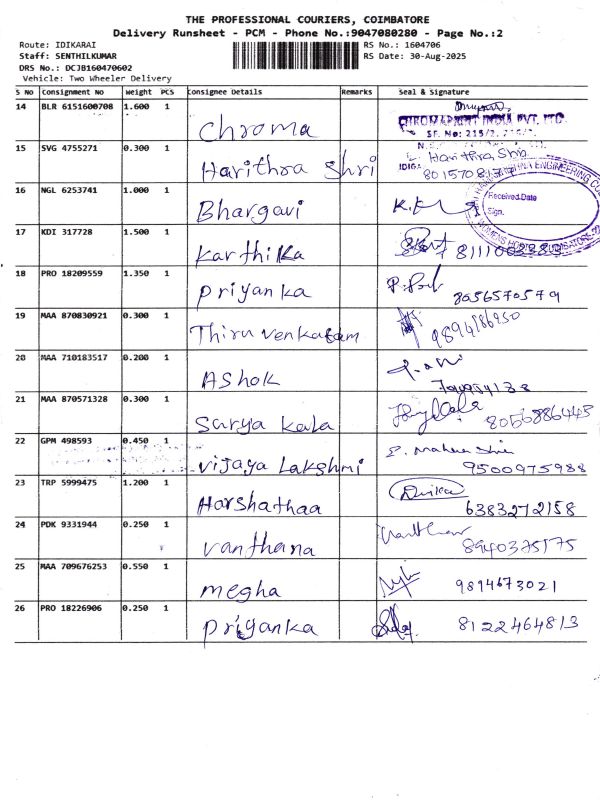 THE PROFESSIONAL COURIERS, COIMBATORE
Delivery Runsheet - PCM - Phone No.:9047080280 - Page No.:2
Route: IDIKARAI
RS No.: 1604706
Staff: SENTHILKUMAR
RS Date: 30-Aug-2025
DRS No.: DCJB160470602
Vehicle: Two Wheeler Delivery
S No Consignment No Weight PCS Consignee Details Remarks Seal & Signature
14 BLR 6151600708 1.600 1 Chroma
CHROMAPRINT INDIA PVT. LTD.
SF. No: 215/2,
15 SVG 4755271 0.300 1 Harithra Shri Harithra Shri
16 NGL 6253741 1.000 1 Bhargavi
ENGINEERING
Received Date
Sign.
17 KDI 317728 1.500 1 Karthika
18 PRO 18209559 1.350 1 Priyanka 8056570579
19 MAA 870830921 0.300 1 Thiru venkatam
20 MAA 710183517 0.200 1 Ashok
21 MAA 870571328 0.300 1 Surya kala 8056886445
22 GPM 498593 0.450 1 Vijaya Lakshmi 9500975988
23 TRP 5999475 1.200 1 Harshathaa 6383272158
24 PDK 9331944 0.250 1 vanthana 8940375175
25 MAA 709676253 0.550 1 megha 9894673021
26 PRO 18226906 0.250 1 Priyanka 8122464813